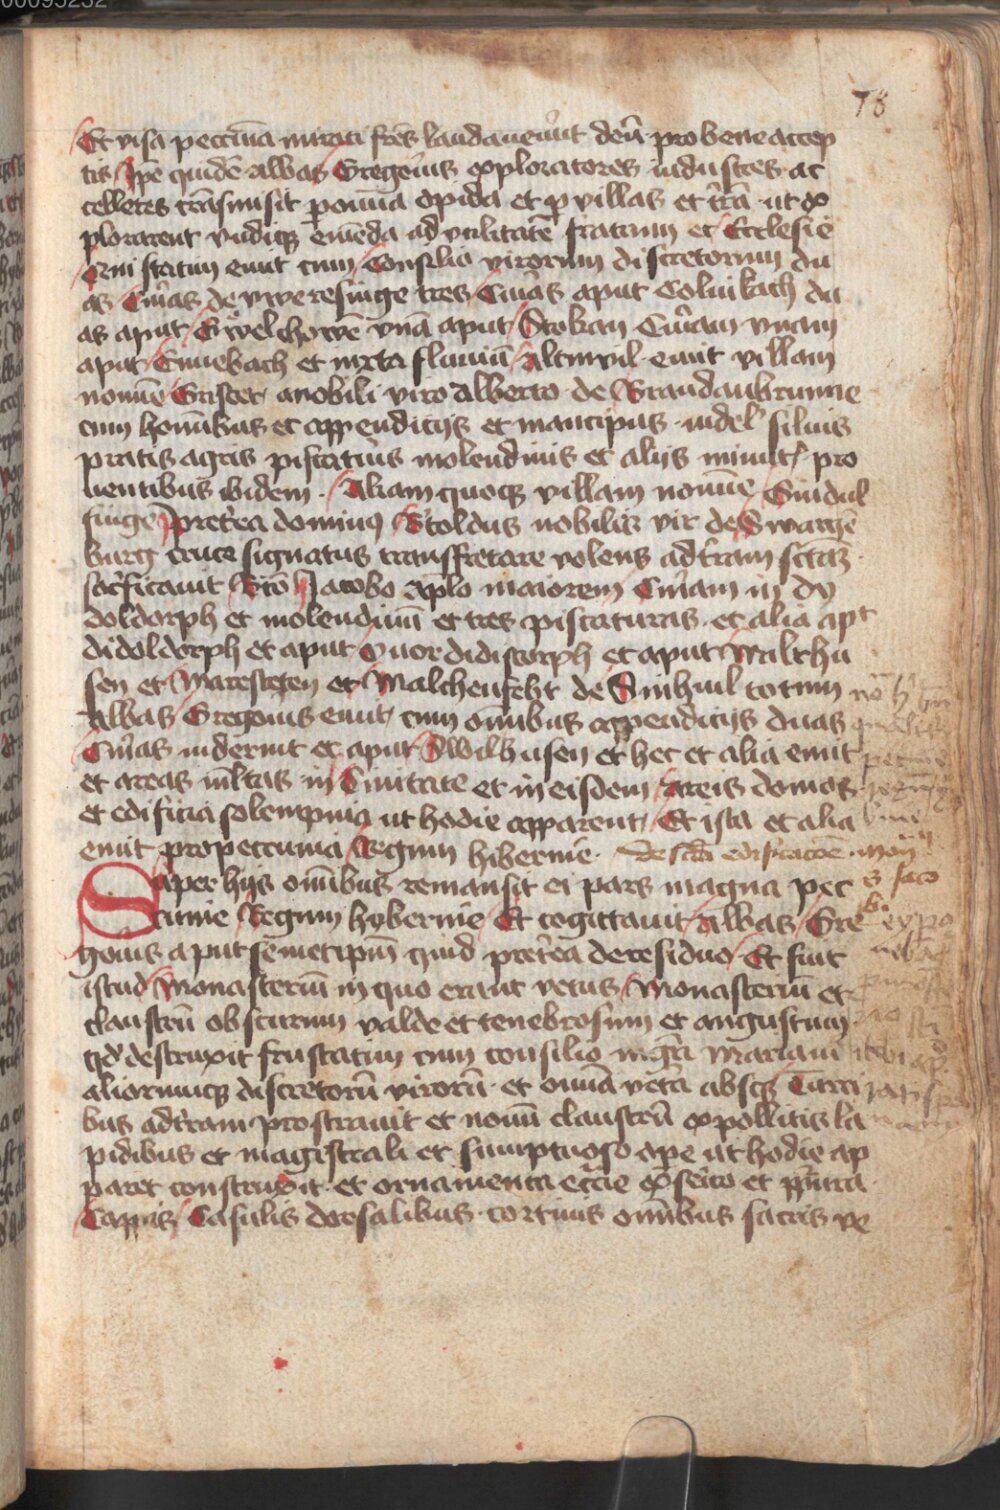 00095232
78
Et visa peccunia mirati fr̄es laudaverūt deū pro bene accep
tis Ip̄e quidē Abbas Gregoriꝰ exploratores industres ac
celleres trāsmisit ꝑ omīa opida et ꝑ villas et tr̄a ut ex
plorarent undiqꝫ emēda ad utilitatē fratrum et Ecclesie
Qui statim emit cum Consilio virorum discretorum du
as Curias de vweresinge tres Curias aput Colmkach du
as aput Gwelchowē unā aput Stokan Curiam unam
aput Emuebach et iuxta fluuiū Altmvil emit villam
nomīe Griscet a nobili viro Alberto de Brandanbrunne
cum hominibus et appendicijs et mancipijs videlꝫ siluis
pratis agris piscarijs molendinis et alijs minutis pro
uentibus ibidem Aliam quoqꝫ villam nomīe Gundul
finge Preterea dominus Etoldus nobilis vir de Swartze
burg cruce signatus transfretare volens ad tr̄am sctāꝫ
sacrificauit Bt̄o Jacobo ap̄lo maiorem Curiam in dy
doldorph et molendinū et tres piscaturas et alia apt
didoldorph et aput Quordidistorph et aput Malchu
sen et Marestetten et Malchenfebt de Emhuil totum
Abbas Gregorius emit cum omībus appendicijs duas
Curias inderint et aput Swilhusen et hec et alia emit
et areas ml̄tas in Ciuitate et in eisdem Areis domos
et edificia solempnia ut hodie apparent Et ista et alia
emit pro peccunia Regum hibernie de scd̄a edificacōe mon̄
Super hijs omībus remansit ei pars magna pec
cunie Regum hybernie Et cogittauit Abbas Gre
gorius aput semetipm̄ quid pret̄ea de residuo Et fuit
istud Monasteriū in quo erant vetus Monasteriū et
claustrū obscurum valde et tenebrosum et angustum
qd̄ destruxit frustatim cum consilio mgr̄i Mariani
aliorumqꝫ discretorū virorū et omīa vet̄a absqꝫ Turri
bus ad tr̄am prostrauit et nouū claustrū ex pollitis la
pidibus et magistrali et sumptuoso ope ut hodie ap
paret construxit et ornamenta ecc̄ie
Cappis Casulis dorsalibus cortinis omībus sacris ve